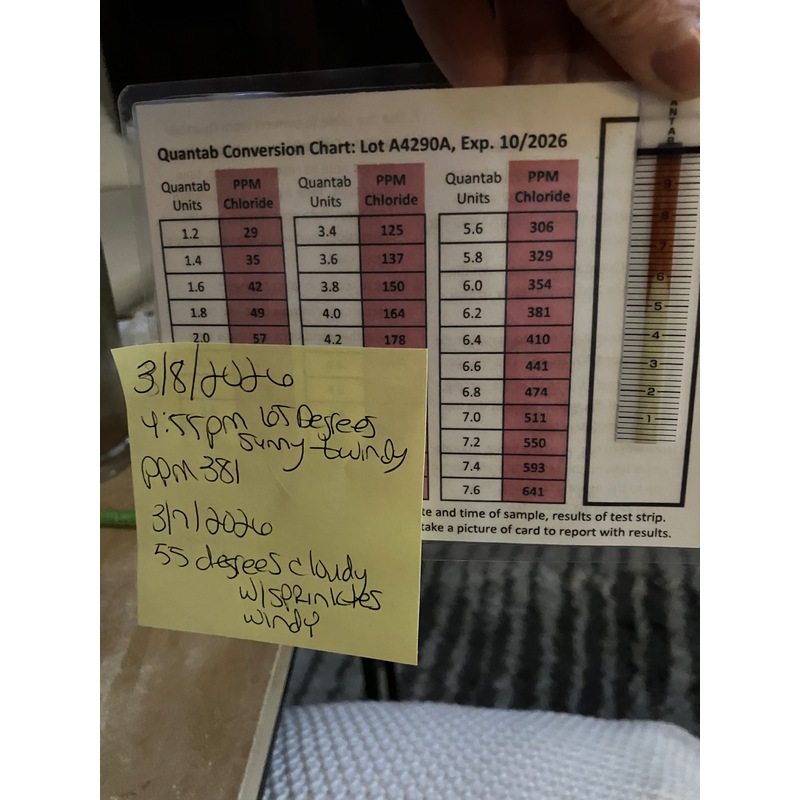 Quantab Conversion Chart: Lot A4290A, Exp. 10/2026
Quantab Units PPM Chloride Quantab Units PPM Chloride Quantab Units PPM Chloride
1.2 29 3.4 125 5.6 306
1.4 35 3.6 137 5.8 329
1.6 42 3.8 150 6.0 354
1.8 49 4.0 164 6.2 381
2.0 57 4.2 178 6.4 410
6.6 441
6.8 474
7.0 511
7.2 550
7.4 593
7.6 641
te and time of sample, results of test strip.
take a picture of card to report with results.
ANTAB
9
8
7
6
5
4
3
2
1
3/8/2026
4:55pm 65 Degrees
sunny + windy
PPM 381
3/7/2026
55 degrees cloudy
w/sprinkles
windy